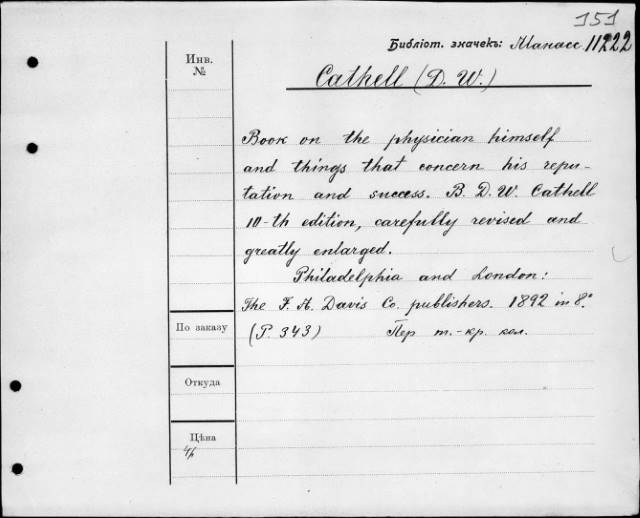 151
Библіот. значекъ: Манасс 11222
Инв.
№
Cathell (D. W.)
Book on the physician himself
and things that concern his repu-
tation and success. B. D. W. Cathell
10-th edition, carefully revised and
greatly enlarged.
Philadelphia and London:
The F. A. Davis Co. publishers. 1892 in 8.°
По заказу
(P. 343) Пер т.-кр. кол.
Откуда
Цѣна